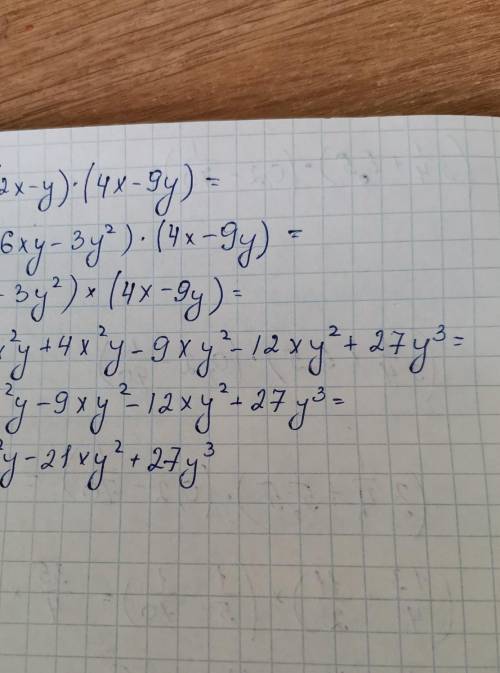 2x-y)·(4x-9y)=
6xy-3y²)·(4x-9y) =
3y²)×(4x-9y)=
x²y+4x²y-9xy²-12xy²+27y³=
²y-9xy²-12xy²+27y³=
²y-21xy²+27y³